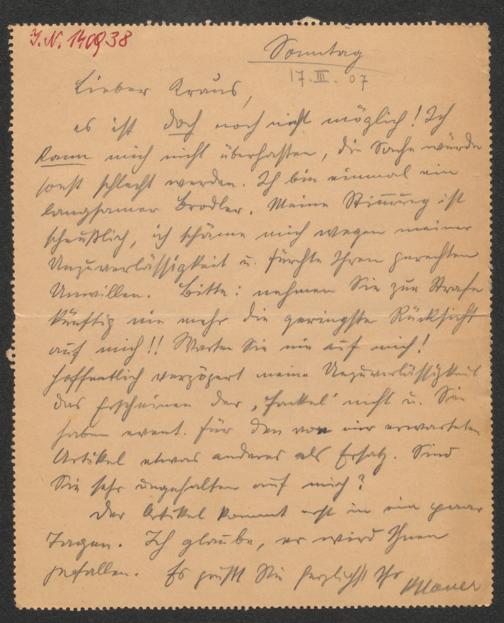 J.N. 140938
Sonntag
17.III.07
Lieber Kraus,
es ist doch noch nicht möglich! Ich
kann mich nicht überhasten, die Sache würde
sonst schlecht werden. Ich bin einmal ein
langsamer Brodler. Meine Stimmung ist
scheußlich, ich schäme mich wegen meiner
Unzuverlässigkeit u. fürchte Ihren gerechten
Unwillen. Bitte: nehmen Sie zur Strafe
künftig nie mehr die geringste Rücksicht
auf mich!! Warten Sie nie auf mich!
Hoffentlich verzögert meine Unzuverlässigkeit
das Erscheinen der „Fackel" nicht u. Sie
haben event. für den von mir erwarteten
Artikel etwas anderes als Ersatz. Sind
Sie sehr ungehalten auf mich?
Der Artikel kommt erst in ein paar
Tagen. Ich glaube, er wird Ihnen
gefallen. Es grüßt Sie herzlichst Ihr